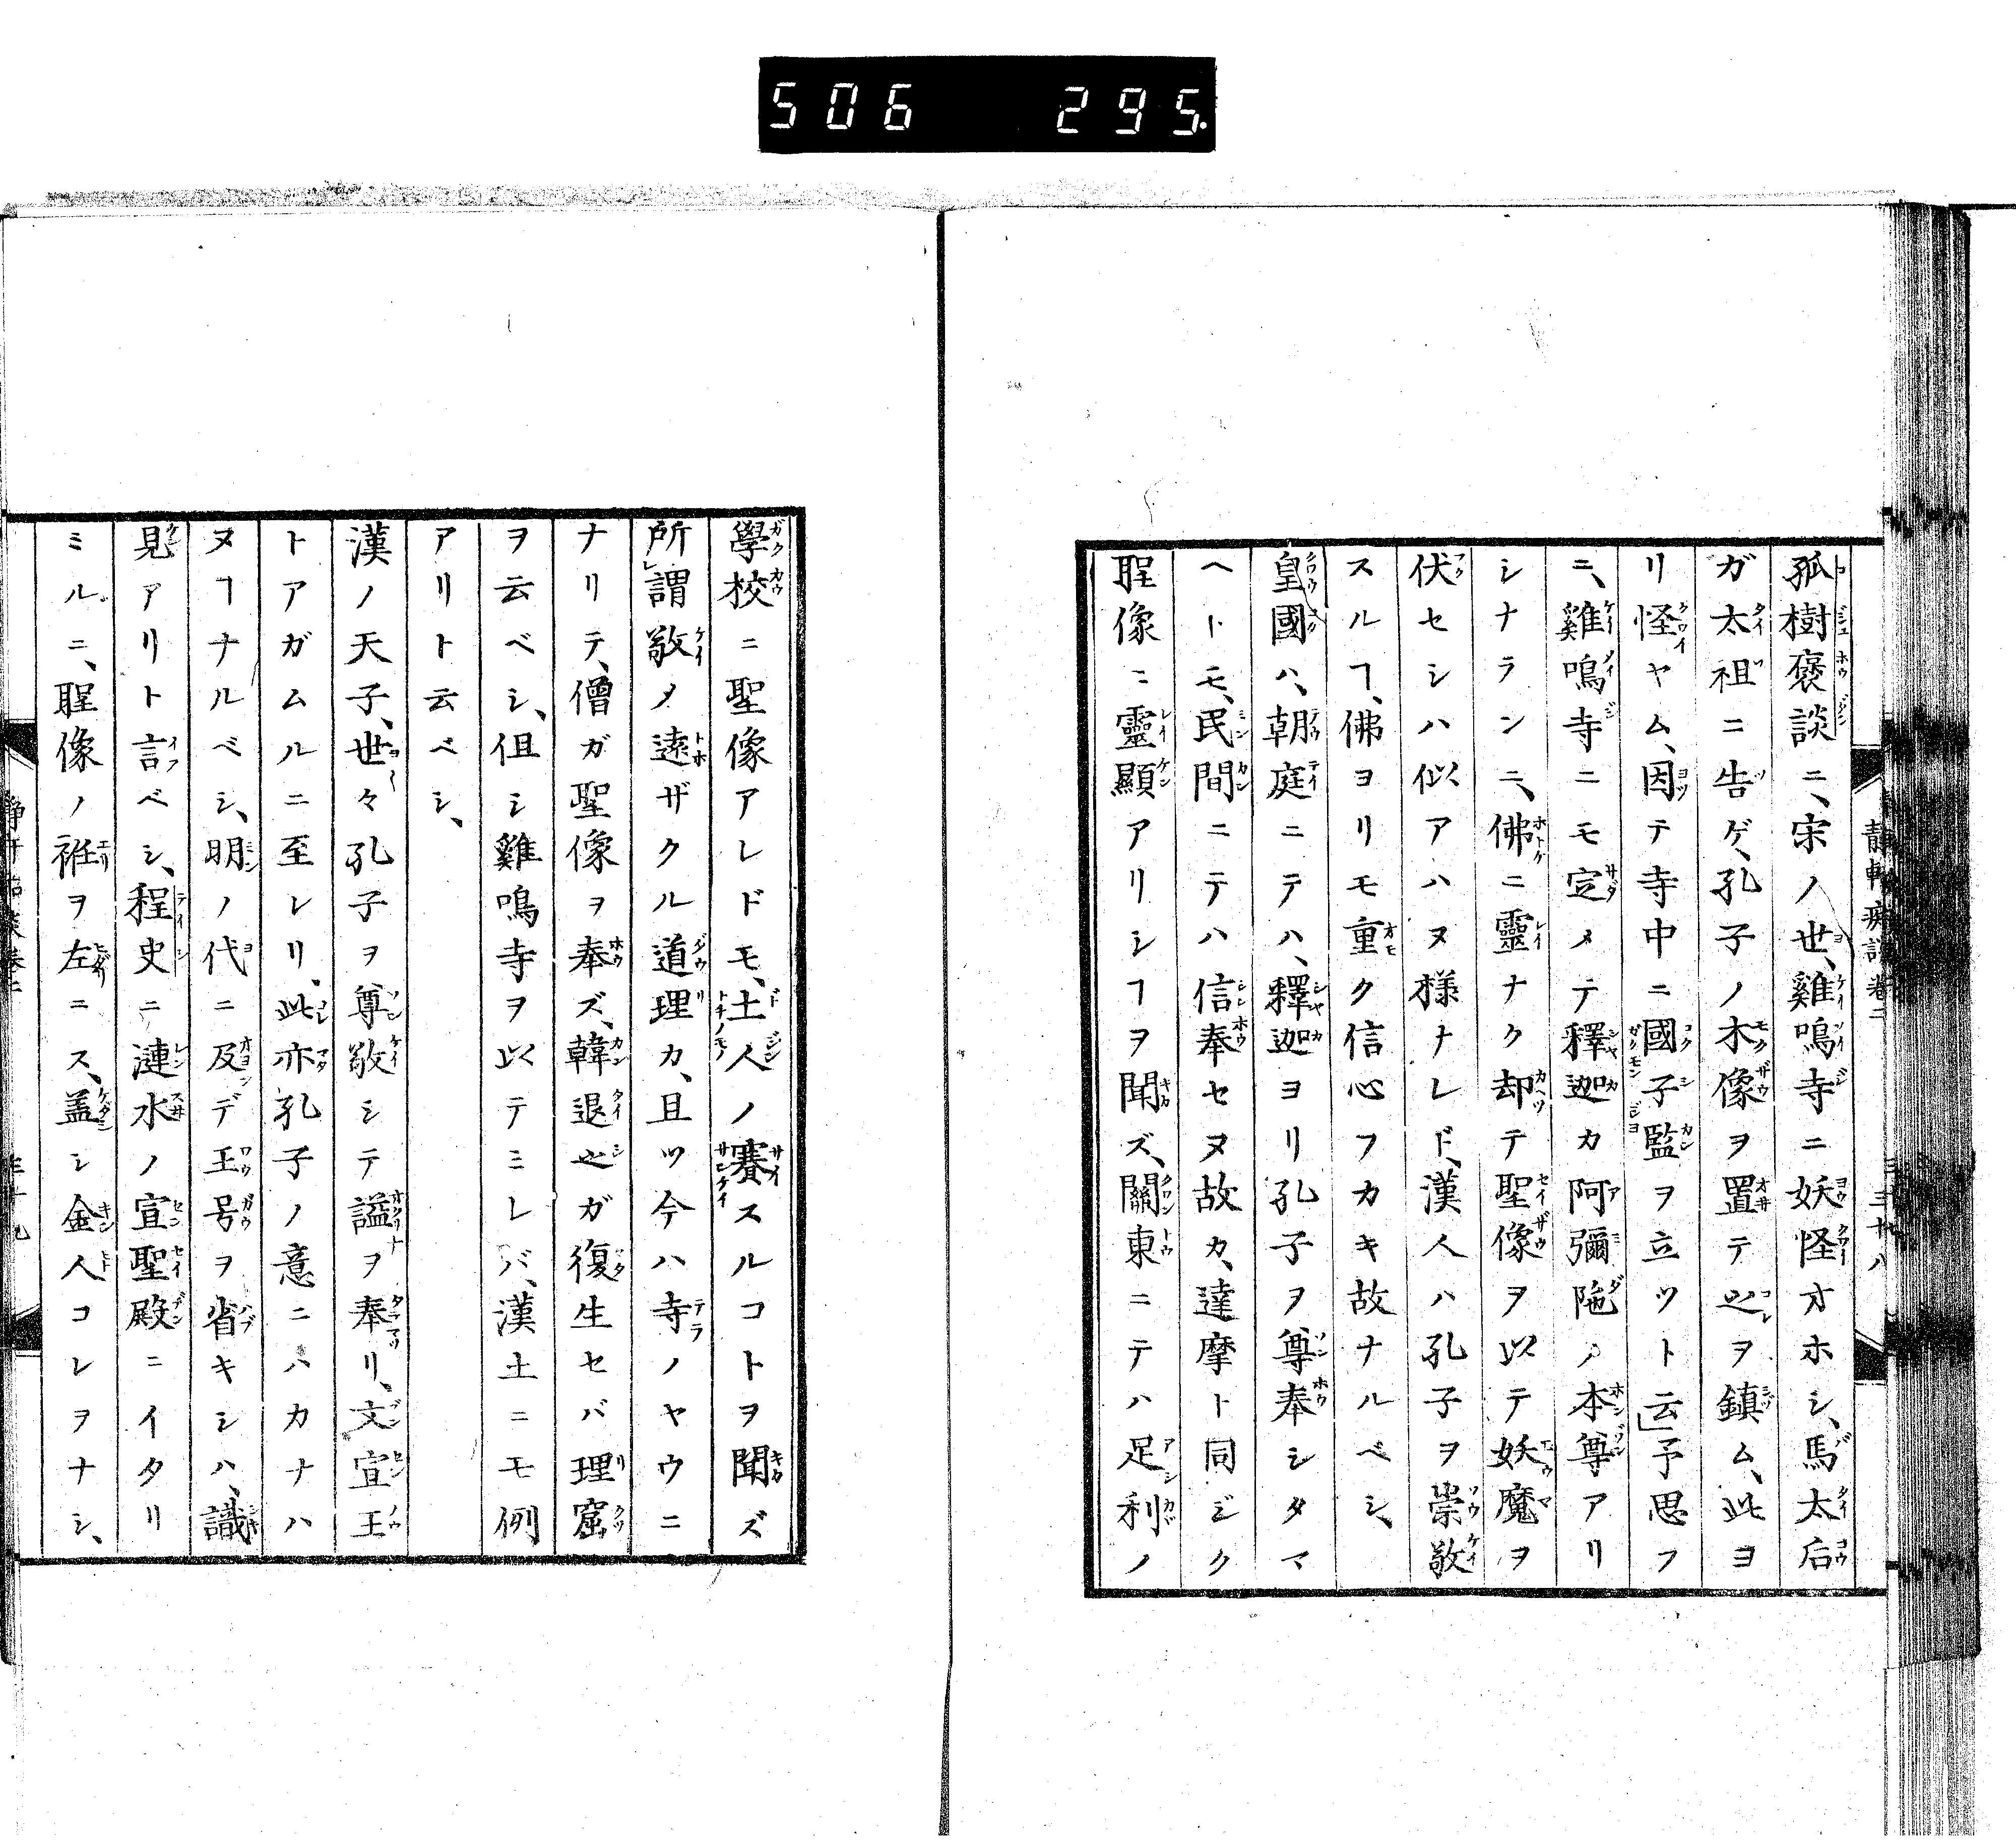 506 295.
靜軒痴談卷二 三十八
孤樹褒談ニ、宋ノ世、雞鳴寺ニ妖怪オホシ、馬太后
ガ太祖ニ告ゲ、孔子ノ木像ヲ置テ之ヲ鎮ム、此ヨ
リ怪ヤム、因テ寺中ニ國子監ヲ立ツト云」予思フ
ニ、雞鳴寺ニモ定メテ釋迦カ阿彌陁ノ本尊アリ
シナランニ、佛ニ靈ナク却テ聖像ヲ以テ妖魔ヲ
伏セシハ似アハヌ様ナレド、漢人ハ孔子ヲ崇敬
スルヿ、佛ヨリモ重ク信心フカキ故ナルベシ、
皇國ハ、朝庭ニテハ、釋迦ヨリ孔子ヲ尊奉シタマ
ヘトモ、民間ニテハ信奉セヌ故カ、達摩ト同ジク
聖像ニ靈顯アリシヿヲ聞ズ、關東ニテハ足利ノ
學校ニ聖像アレドモ、土人ノ賽スルコトヲ聞ズ
所謂敬メ遠ザクル道理カ、且ツ今ハ寺ノヤウニ
ナリテ、僧ガ聖像ヲ奉ズ、韓退之ガ復生セバ理窟
ヲ云ベシ、但シ雞鳴寺ヲ以テミレバ、漢土ニモ例
アリト云ベシ、
漢ノ天子、世々孔子ヲ尊敬シテ謚ヲ奉リ、文宣王
トアガムルニ至レリ、此亦孔子ノ意ニハカナハ
ヌヿナルベシ、明ノ代ニ及デ王号ヲ省キシハ、識
見アリト言ベシ、程史ニ漣水ノ宣聖殿ニイタリ
ミルニ、聖像ノ袵ヲ左ニス、盖シ金人コレヲナシ、